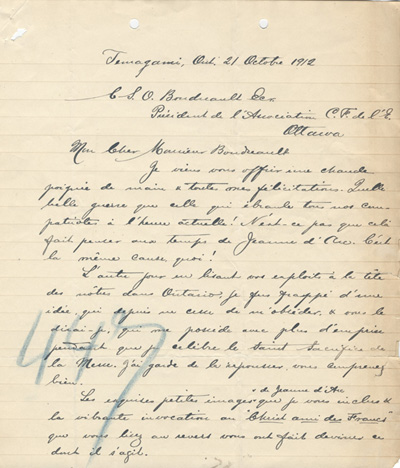 Temagami, Ont. 21 Octobre 1912
C.S.O. Boudreault Ecr
Président de l'Association C.F. de l'E.
Ottawa
Mon Cher Monsieur Boudreault
Je viens vous offrir une chaude
poignée de main & toutes mes félicitations. Quelle
belle guerre que celle qui ébranle tous nos com-
patriotes à l'heure actuelle! N'est-ce pas que cela
fait penser aux temps de Jeanne d'Arc. C'est
la même cause, quoi!
L'autre jour en lisant vos exploits à la tête
des nôtres dans Ontario, je fus frappé d'une
idée qui depuis ne cesse de m'obséder, & vous le
dirai-je, qui me possède avec plus d'emprise
pendant que je célèbre le Saint Sacrifice de
la Messe. J'ai garde de la repousser, vous comprenez
bien.
Les exquises petites images de Jeanne d'Arc que je vous inclus &
la vibrante invocation au "Christ ami des Francs"
que vous lisez au revers vous ont fait deviner ce
dont il s'agit.
447